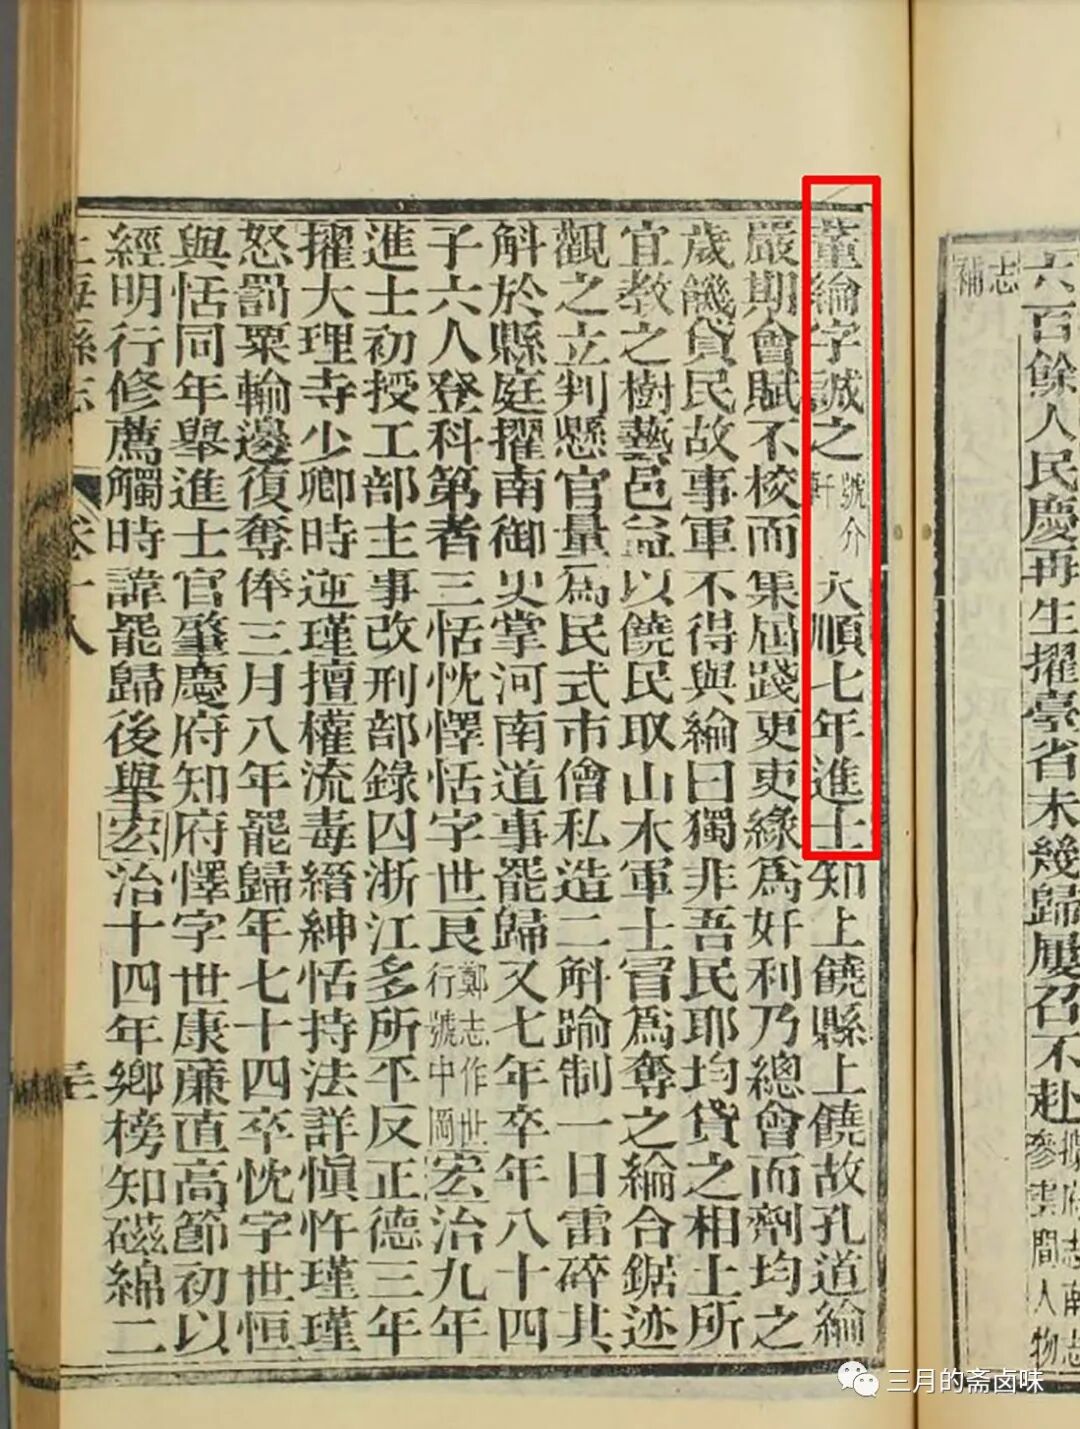 六百餘人民慶再生擢臺省未幾歸屢召不赴
參雲間人物
志
補
董綸字誠之號介軒天順七年進士知上饒縣上饒故孔道綸
嚴期會賦不校而集屆踐更吏緣為奸利乃總會而劑均之
歲饑貸民故事軍不得與綸曰獨非吾民耶均貸之相土所
宜教之樹藝邑益以饒民取山木軍士冒為奪之綸合鋸迹
觀之立判懸官量為民式市儈私造二斛踰制一日雷碎其
斛於縣庭擢南御史掌河南道事罷歸又七年卒年八十四
子六人登科第者三恬忱懌恬字世良鄭志作世行號中岡宏治九年
進士初授工部主事改刑部錄囚浙江多所平反正德三年
擢大理寺少卿時逆瑾擅權流毒縉紳恬持法詳愼忤瑾瑾
怒罰粟輸邊復奪俸三月八年罷歸年七十四卒忱字世恒
與恬同年舉進士官肇慶府知府懌字世康廉直高節初以
經明行修薦觸時諱罷歸後舉宏治十四年鄉榜知磁綿二
上海縣志 卷十八
三月的斋卤味